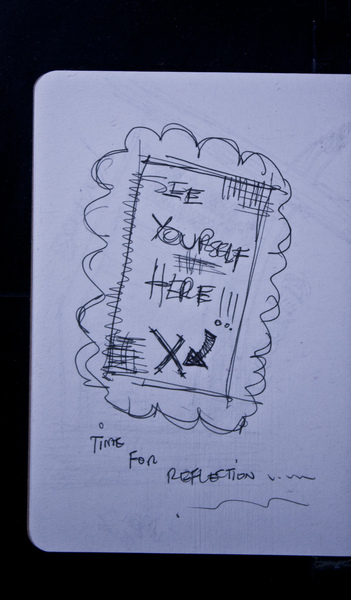 SEE
YOURSELF
HERE!!!
X
TIME
FOR
REFLECTION .....